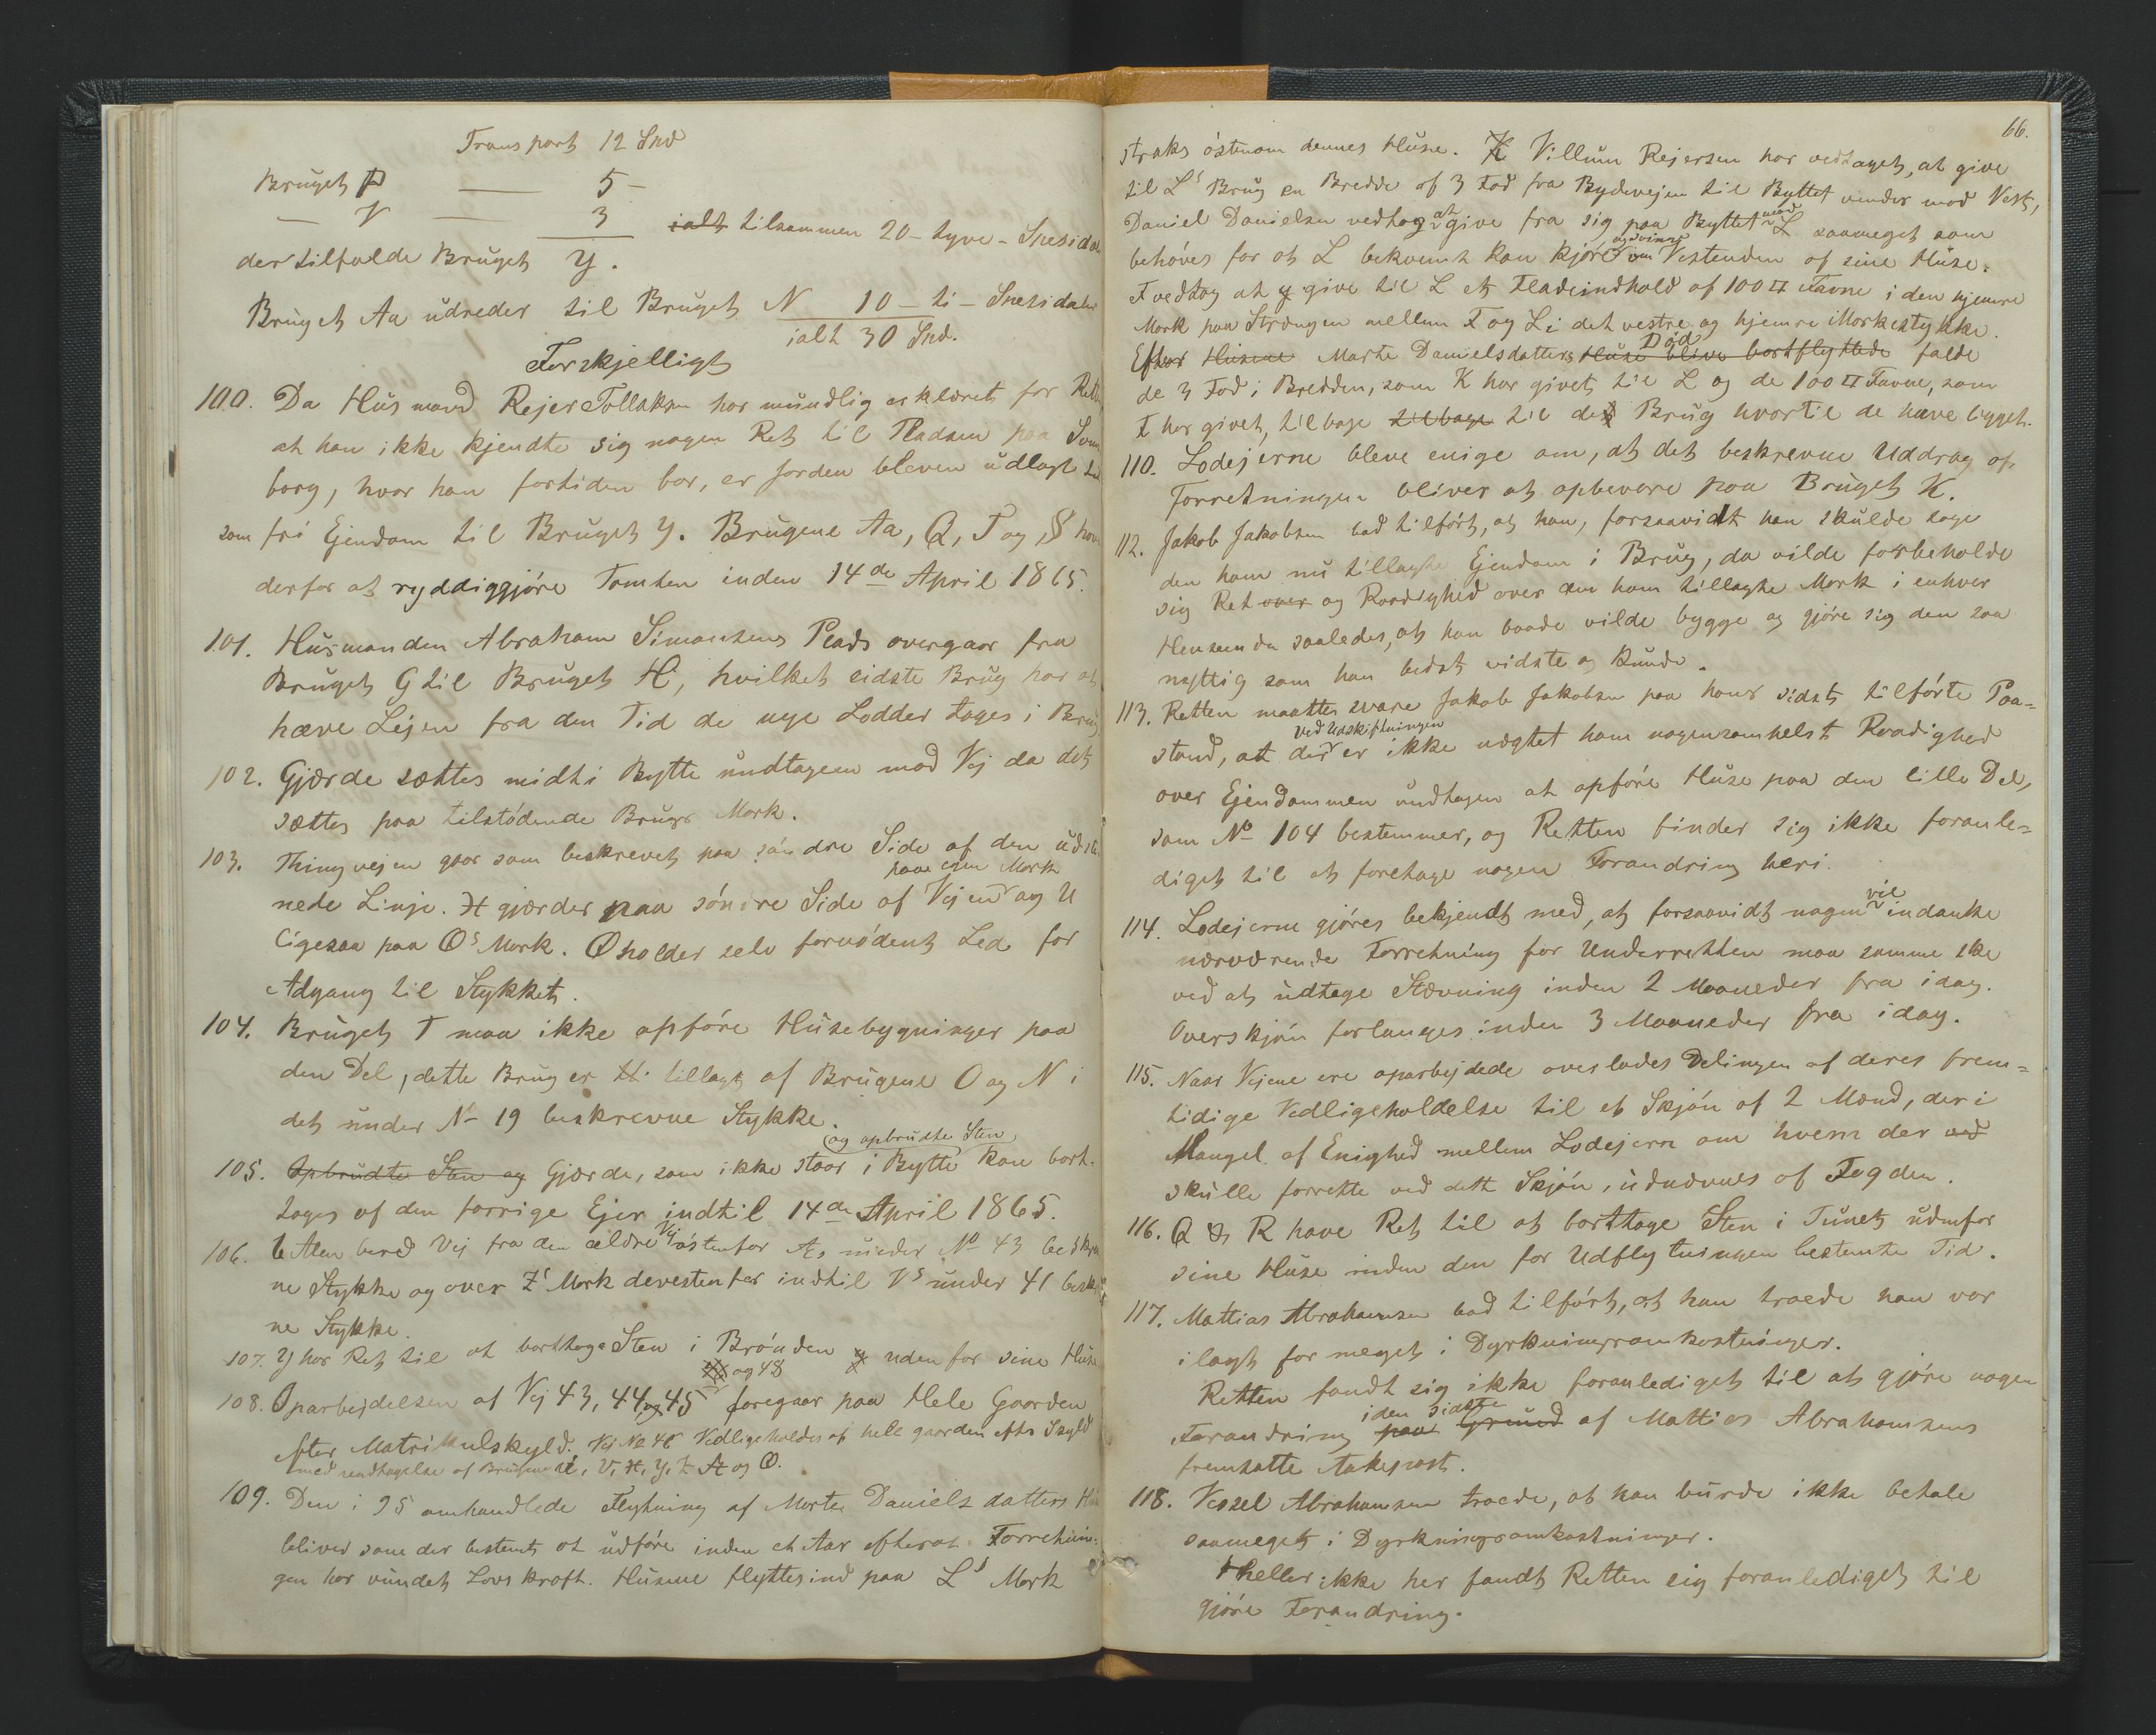 Transport 12 Spd
Bruget P — 5 –
— V — 3 ialt tilsammen 20 – tyve – Spesidaler
der tilfalde Bruget Y.
Bruget Aa udreder til Bruget N 10 – ti – Spesidaler
ialt 30 Spd.
Forskjelligt
100. Da Husmand Rejer Tollaksen har mundlig erklæret for Retten
at han ikke kjendte sig nogen Ret til Pladsen paa
borg, hvor han fortiden bor, er Jorden bleven udlagt
som fri Ejendom til Bruget Y. Brugene Aa, Q, T og S have
derfor at ryddiggjøre Tomten inden 14de April 1865.
101. Husmanden Abraham Simonsens Plads overgaar fra
Bruget G til Bruget H, hvilket sidste Brug har at
hæve Lejen fra den Tid de nye Lodder tages i Brug
102. Gjærde sættes midt i Bytte undtagen mod Vej da det
sættes paa tilstødende Brugs Mark.
103. Thingvejen gaar som beskrevet paa søndre Side af den
paa egen Mark
nede Linje. H gjærder paa søndre Side af Vejen og U
ligesaa paa Øs Mark. Ø holder selv fornødent Led for
Adgang til Stykket.
104. Bruget T maa ikke opføre Husebygninger paa
den Del, dette Brug er ti tillagt af Brugene O og N i
det under No 19 beskrevne Stykke.
og opbrudte Sten
105. Opbrudte Sten og Gjærde, som ikke staar i Bytte kan bort-
tages af den forrige Ejer indtil 14de April 1865.
106. 6 Alen bred Vej fra den ældre Vej østenfor Aas under No 43 beskrev
ne Stykke og over Zs Mark devestenfor indtil Vs under 41 beskrev
ne Stykke.
107. Y har Ret til at borttage Sten i Brønden y udenfor sine Huse
og 48
108. Oparbejdelsen af Vej 43, 44, og 45 foregaar paa Hele Gaarden
efter Matrikulskyld. Vej No 48 Vedligeholdes af hele gaarden efter Skyld
med undtagelse af Brugene U, V, H, Y, Z Æ og Ø.
109. Den i 95 omhandlede Flytning af Marte Danielsdatters Huse
bliver som der bestemt at udføre inden et Aar efterat Forretnin-
gen har vundet Lovskraft. Husene flyttes ind paa Ls Mark
66.
straks østenom dennes Huse. K Villum Rejersen har vedtaget, at give
til Ls Brug en Bredde af 3 Fod fra Bydevejen til Byttet vender mod Vest,
Daniel Danielsen vedtog at give fra sig paa Byttet mod L saameget som
behøves for at L bekvemt kan kjøre og svinge om Vestenden af sine Huse.
T vedtog at y give til L et Fladeindhold af 100 □ Favne i den hjemre
Mark paa Strængen mellem T og L i det vestre og hjemre Markestykke.
Død
Efter Husene Marte Danielsdatters Huse blive bortflyttede falde
de 3 Fod i Bredden, som K har givet til L og de 100 □ Favne, som
T har givet, tilbage tilbage til det Brug hvortil de have ligget.
110. Lodejerne bleve enige om, at det beskrevne Uddrag af
Forretningen bliver at opbevare paa Bruget K.
112. Jakob Jakobsen bad tilført, at han, forsaavidt han skulde tage
den ham nu tillagte Ejendom i Brug, da vilde forbeholde
sig Ret over og Raadighed over den ham tillagte Mark i enhver
Henseende saaledes, at han baade vilde bygge og gjøre sig den saa
nyttig som han bedst vidste og kunde.
113. Retten maatte svare Jakob Jakobsen paa hans sidst tilførte Paa=
ved Udskiftningen
stand, at der er ikke nægtet ham nogensomhelst Raadighed
over Ejendommen undtagen at opføre Huse paa den lille Del,
som No 104 bestemmer, og Retten finder sig ikke foranle=
diget til at foretage nogen Forandring heri.
114. Lodejerne gjøres bekjendt med, at forsaavidt nogen vil indanke
nærværende Forretning for Underretten maa samme ske
ved at udtage Stævning inden 2 Maaneder fra idag.
Overskjøn forlanges inden 3 Maaneder fra idag.
115. Naar Vejene ere oparbejdede overlades Delingen af deres frem=
tidige Vedligeholdelse til et Skjøn af 2 Mænd, der i
Mangel af Enighed mellem Lodejern om hvem der ved
skulle forrette ved dette Skjøn, udnævnes af Fogden.
116. Q & R have Ret til at borttage Sten i Tunet udenfor
sine Huse inden den for Udflytningen bestemte Tid.
117. Mattias Abrahamsen bad tilført, at han troede han var
ilagt for meget i Dyrkningsomkostninger.
Retten fandt sig ikke foranlediget til at gjøre nogen
i den sidste
Forandring paa Grund af Mattias Abrahamsens
fremsatte Ankepost.
118. Vessel Abrahamsen troede, at han burde ikke betale
saameget i Dyrkningsomkostninger.
Heller ikke her fandt Retten sig foranlediget til
gjøre Forandring.